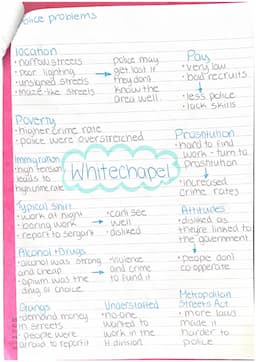 Police problems
location
• narrow streets
• poor lighting
• unsigned streets
• maze-like streets
police may
get lost if
they dont
know the
area well
Pay
• very low
• bad recruits
• less police
• lack skills
Poverty
• higher crime rate
• police were overstretched
Prostitution
• hard to find
work - turn to
prostitution
• increased
crime rates
Immigration
• high tension
leads to
high crime rate
Whitechapel
Typical shift
• work at night
• boring work
• report to sergant
• cant see
well
• disliked
Attitudes
• disliked as
they're linked to
the government
• people dont
co-opperate
Alcohol + Drugs
• alcohol was strong
and cheap
• opium was the
drug of choice
• violence
and crime
to fund it
Gangs
• demand money
in streets
• people were
afraid to report it
Understaffed
• no-one
wanted to
work in the
H division
Metropolitan
Streets Act
• more laws
made it
harder to
police